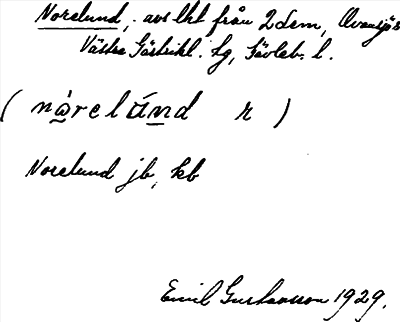 Norelund, avs lht från 2dem, Ovansjö s
Västra Gästrikl. Lg, Gävleb. l.
(nårelúnd r)
Norelund jb, kb
Emil Gustavsson 1929.